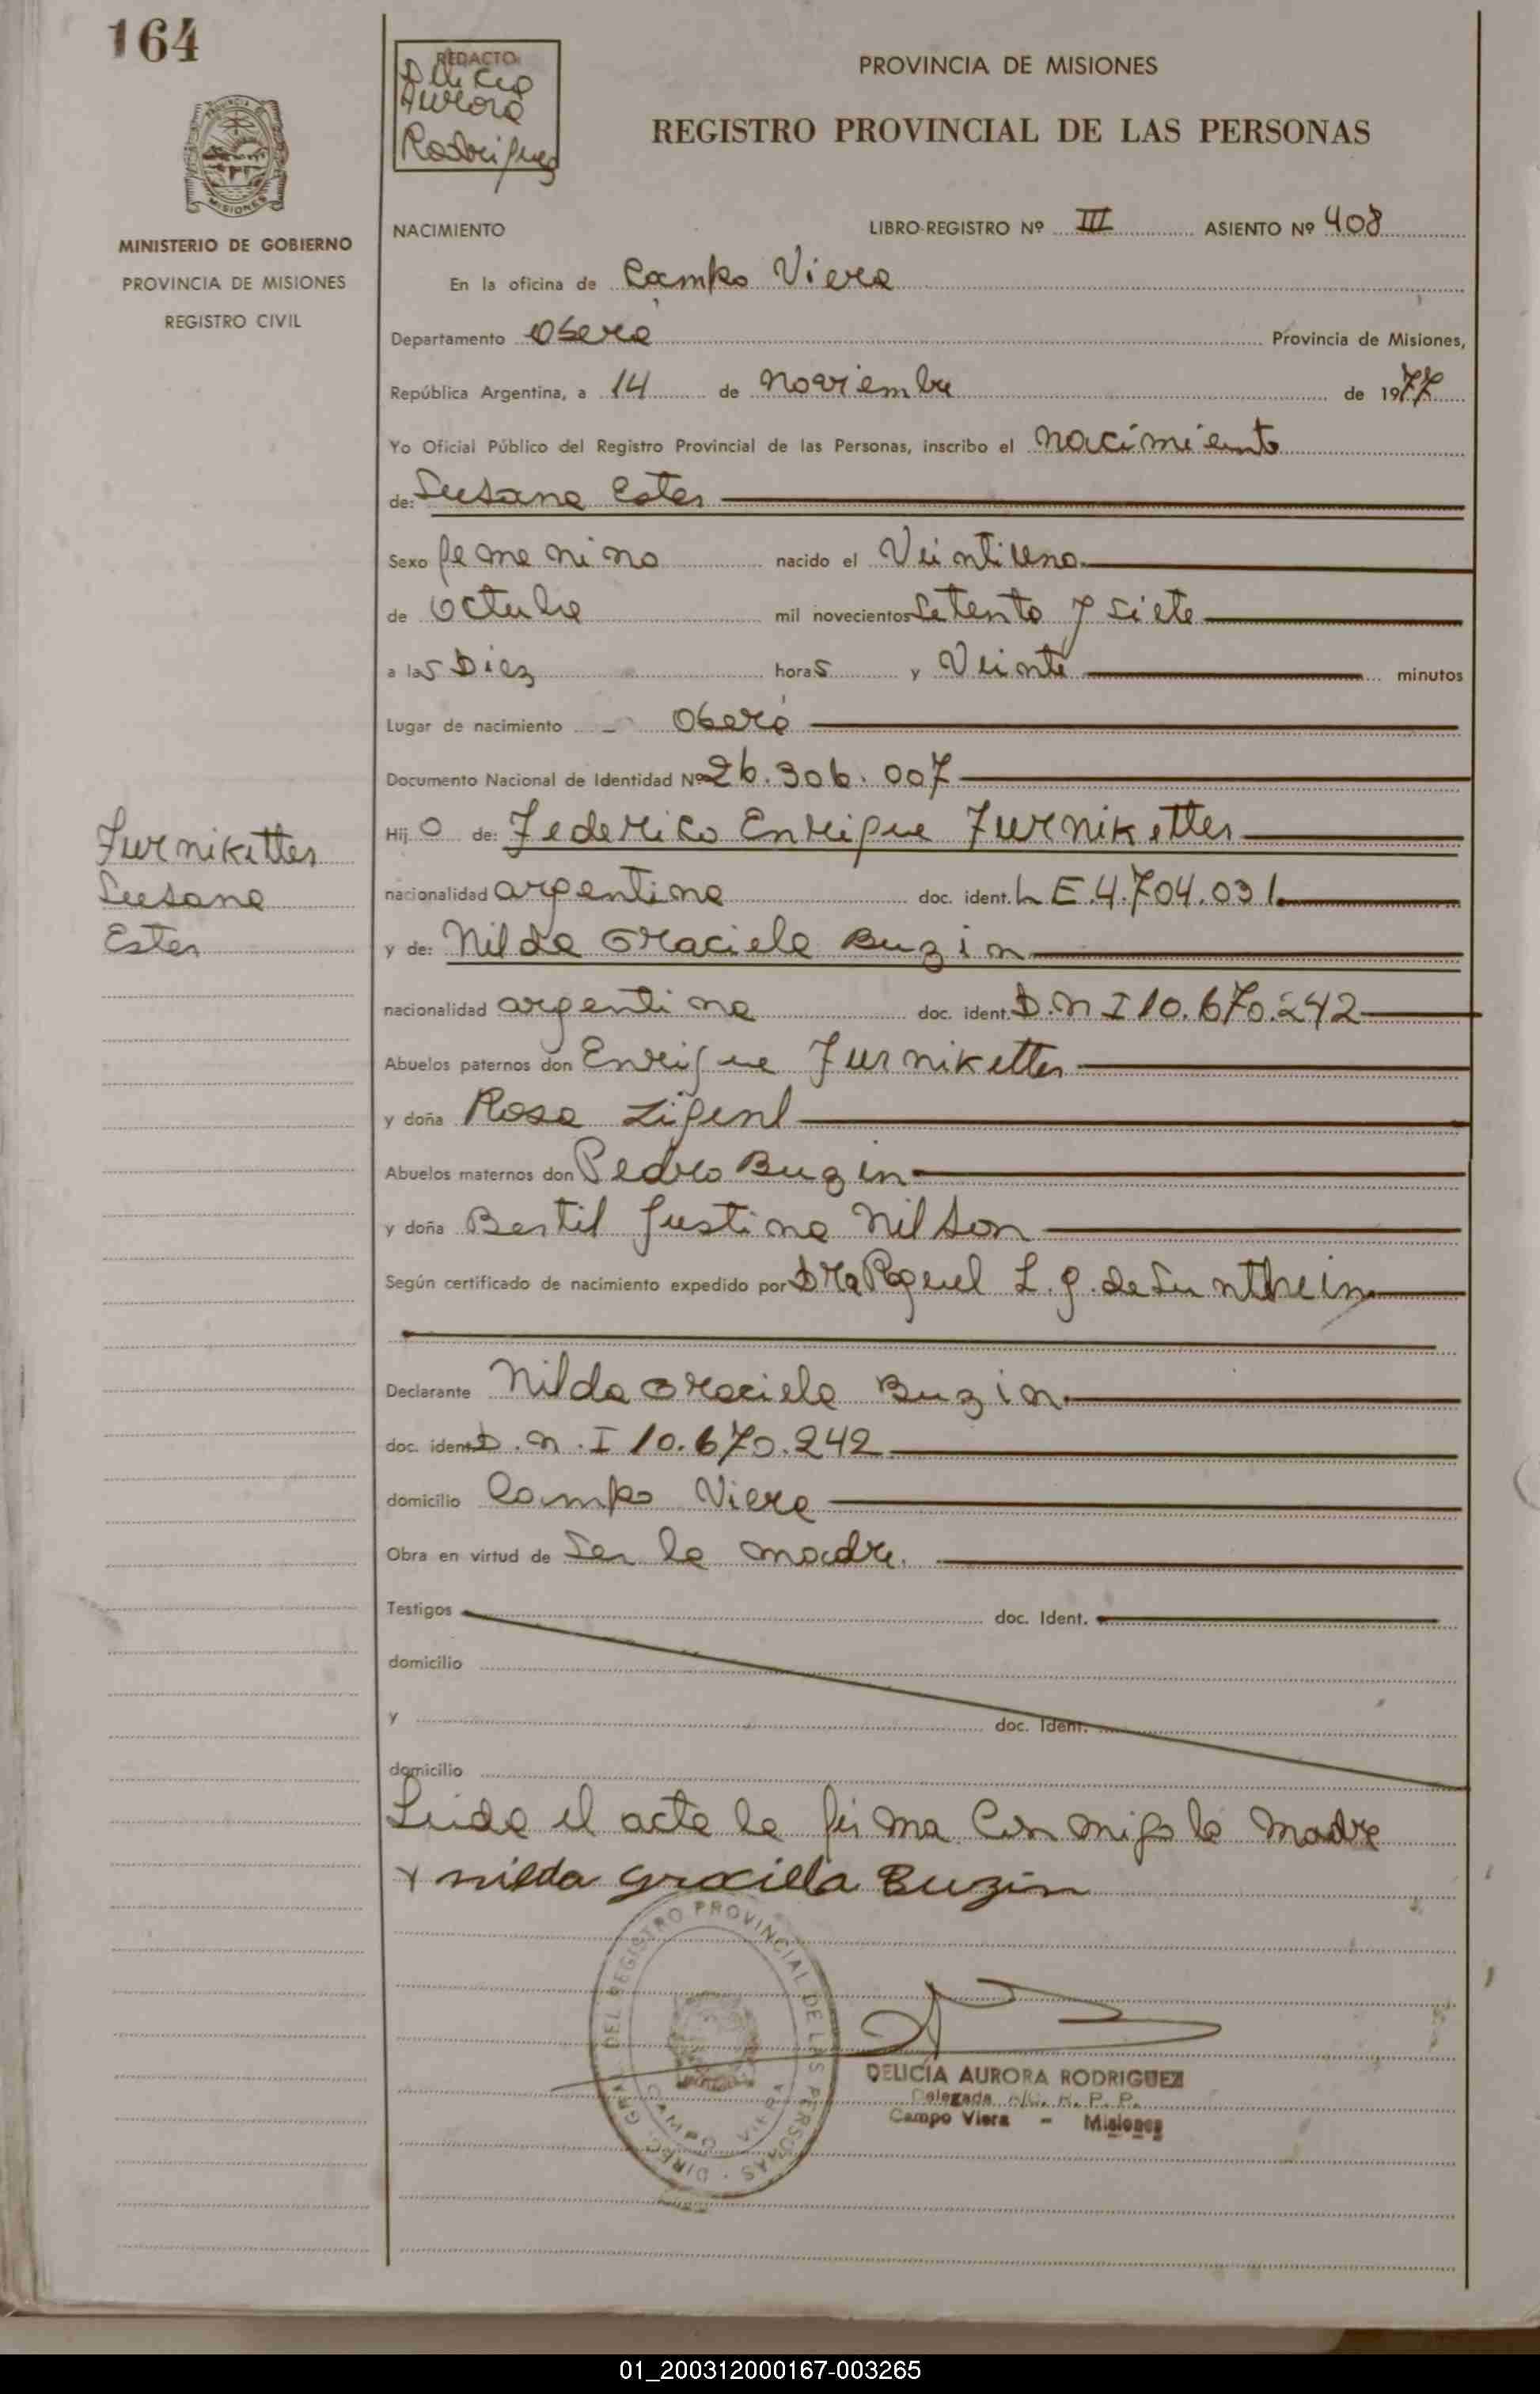 164
REDACTO:
Delicia
Aurora
Rodriguez
PROVINCIA DE MISIONES
REGISTRO PROVINCIAL DE LAS PERSONAS
MINISTERIO DE GOBIERNO
PROVINCIA DE MISIONES
REGISTRO CIVIL
NACIMIENTO LIBRO-REGISTRO Nº III ASIENTO Nº 408
En la oficina de Campo Viera
Departamento Oberá Provincia de Misiones,
República Argentina, a 14 de noviembre de 1977
Yo Oficial Público del Registro Provincial de las Personas, inscribo el nacimiento
de: Susana Ester
Sexo femenino nacido el Veintiuno
de octubre mil novecientos setenta y siete
a las Diez horas y Veinte minutos
Lugar de nacimiento Oberá
Documento Nacional de Identidad Nº 26.306.007
Furnikettes
Susana
Ester
Hijo de: Federico Enrique Furnikettes
nacionalidad argentina doc. ident. L E.4.704.031
y de: Nilda Graciela Buzin
nacionalidad argentina doc. ident. D.N I 10.670.242
Abuelos paternos don Enrique Furnikettes
y doña Rosa
Abuelos maternos don Pedro Buzin
y doña Bertil Justina Nilson
Según certificado de nacimiento expedido por Dra Raquel L. g. de
Declarante Nilda Graciela Buzin
doc. ident D.N.I 10.670.242
domicilio Campo Viera
Obra en virtud de Ser la madre.
Testigos doc. Ident.
domicilio
y doc. Ident.
domicilio
Leida el acta la firma Conmigo la madre
x nilda graciella Buzin
DIREC. GRAL. DEL REGISTRO PROVINCIAL DE LAS PERSONAS
CAMPO VIERA
DELICIA AURORA RODRIGUEZ
Delegada A/C. R. P. P.
Campo Viera - Misiones
01_200312000167-003265